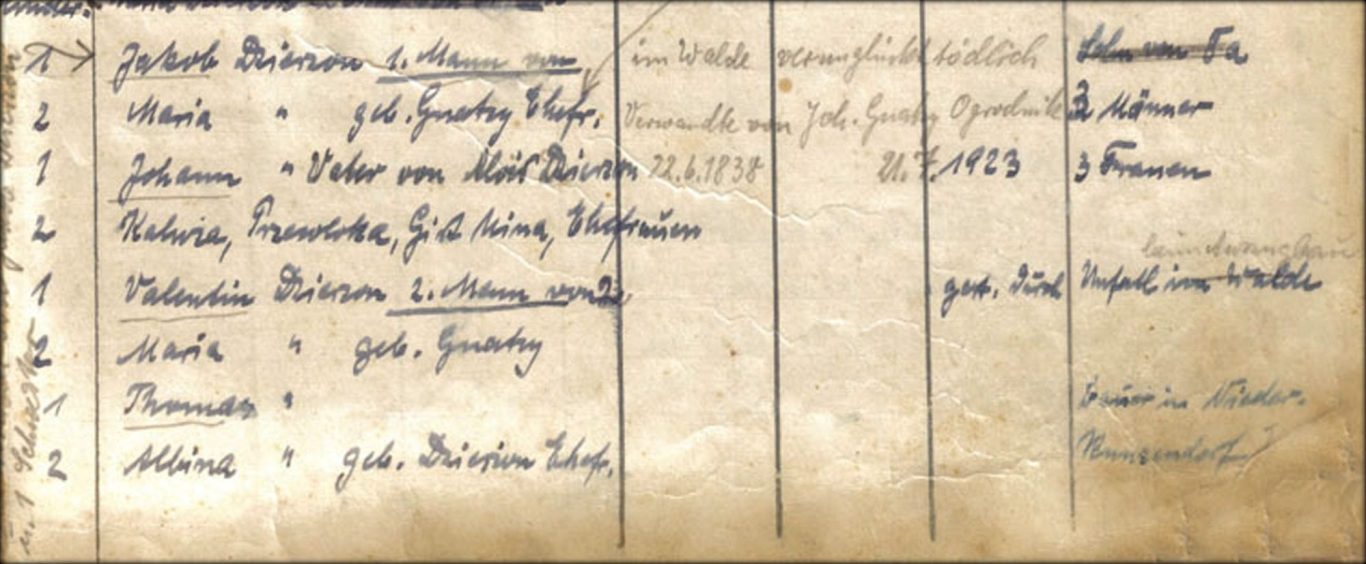 1 → Jakob Dzierzon 1. Mann von im Walde verunglückt tödlich Sohn von Fa
2 Maria " geb. Gnatzy Ehefr. Verwandte von Joh. Gnatzy Ogrodnik 2 Männer
1 Johann " Vater von Alois Dzierzon 22.6.1838 21.7.1923 3 Frauen
2 Kaluza, Przewloka, Gist Nina, Ehefrauen
1 Valentin Dzierzon 2. Mann von 2. gest. durch Unfall im Walde
2 Maria " geb. Gnatzy
1 Thomas " Bauer in Nieder.
2 Albina " geb. Dzierzon Ehefr. Kunzendorf